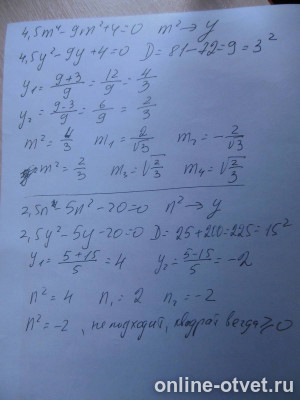 4,5m⁴-9m²+4=0 m²→y
4,5y²-9y+4=0 D=81-72=9=3²
y₁=(9+3)/9=12/9=4/3
y₂=(9-3)/9=6/9=2/3
m²=4/3 m₁=2/√3 m₂=-2/√3
m²=2/3 m₃=√(2/3) m₄=√(2/3)
2,5n⁴-5n²-20=0 n²→y
2,5y²-5y-20=0 D=25+200=225=15²
y₁=(5+15)/5=4 y₂=(5-15)/5=-2
n²=4 n₁=2 n₂=-2
n²=-2, не подходит, квадрат всегда ≥0
online-otvet.ru